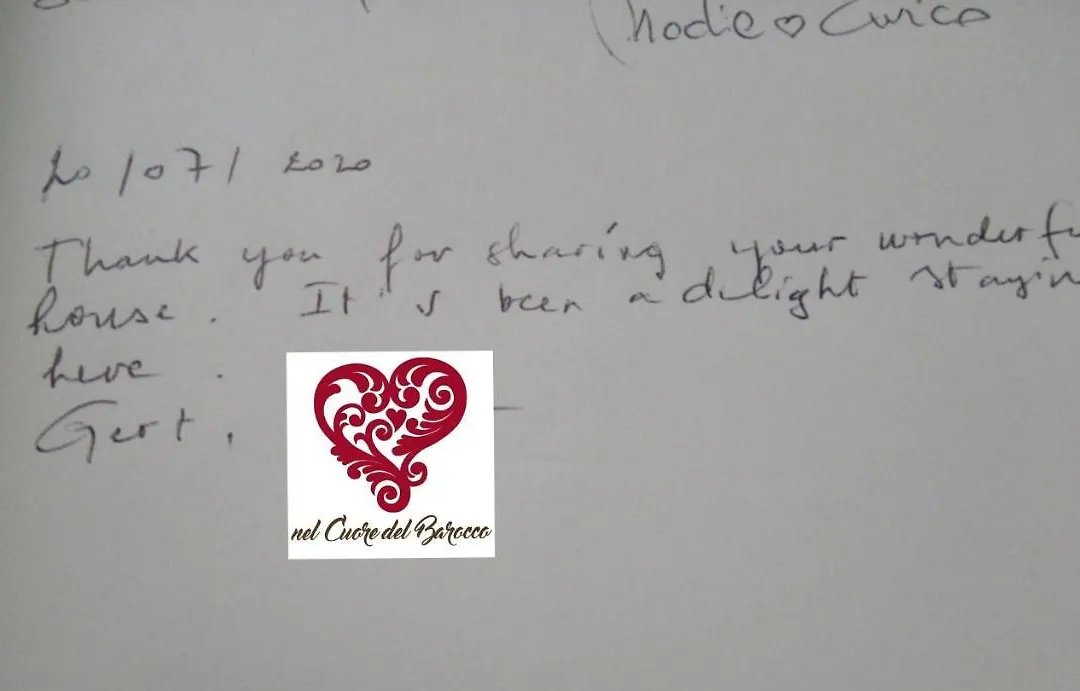 20/07/2020
Thank you for sharing your wonderfu
house. It's been a delight stayin
here.
Gert,
nel Cuore del Barocco